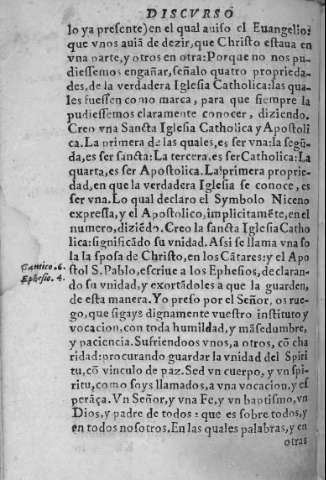 DISCVRSO
lo ya presente) en el qual auiso el Euangelio:
que vnos auiã de dezir, que Christo estaua en
vna parte, y otros en otra: Porque no nos pu-
diessemos engañar, señalo quatro propriada-
des, de la verdadera Iglesia Catholica: las qua-
les fuessen como marca, para que siempre la
pudiessemos claramente conocer, diziendo.
Creo vna Sancta Iglesia Catholica y Apostoli
ca. La primera de las quales, es ser vna: la segũ-
da, es ser sancta: La tercera, es ser Catholica: La
quarta, es ser Apostolica. La primera proprie-
dad, en que la verdadera Iglesia se conoce, es
ser vna. Lo qual declaro el Symbolo Niceno
expressa, y el Apostolico, implicitamẽte, en el
numero, diziẽdo. Creo la sancta Iglesia Catho
lica: significãdo su vnidad. Assi se llama vna so
la la sposa de Christo, en los Cãtares: y el Apo
Cantico. 6.
stol S. Pablo, escriue a los Ephesios, declaran-
Ephesio. 4.
do su vnidad, y exortãdoles a que la guarden,
de esta manera. Yo preso por el Señor, os rue-
go, que sigays dignamente vuestro instituto y
vocacion, con toda humildad, y mãsedumbre,
y paciencia. Sufriendoos vnos, a otros, cõ cha
ridad: procurando guardar la vnidad del Spiri
tu, cõ vinculo de paz. Sed vn cuerpo, y vn spi-
ritu, como soys llamados, a vna vocacion, y es
perãça. Vn Señor, y vna Fe, y vn baptismo, vn
Dios, y padre de todos: que es sobre todos, y
en todos nosotros, En las quales palabras, y en
otras